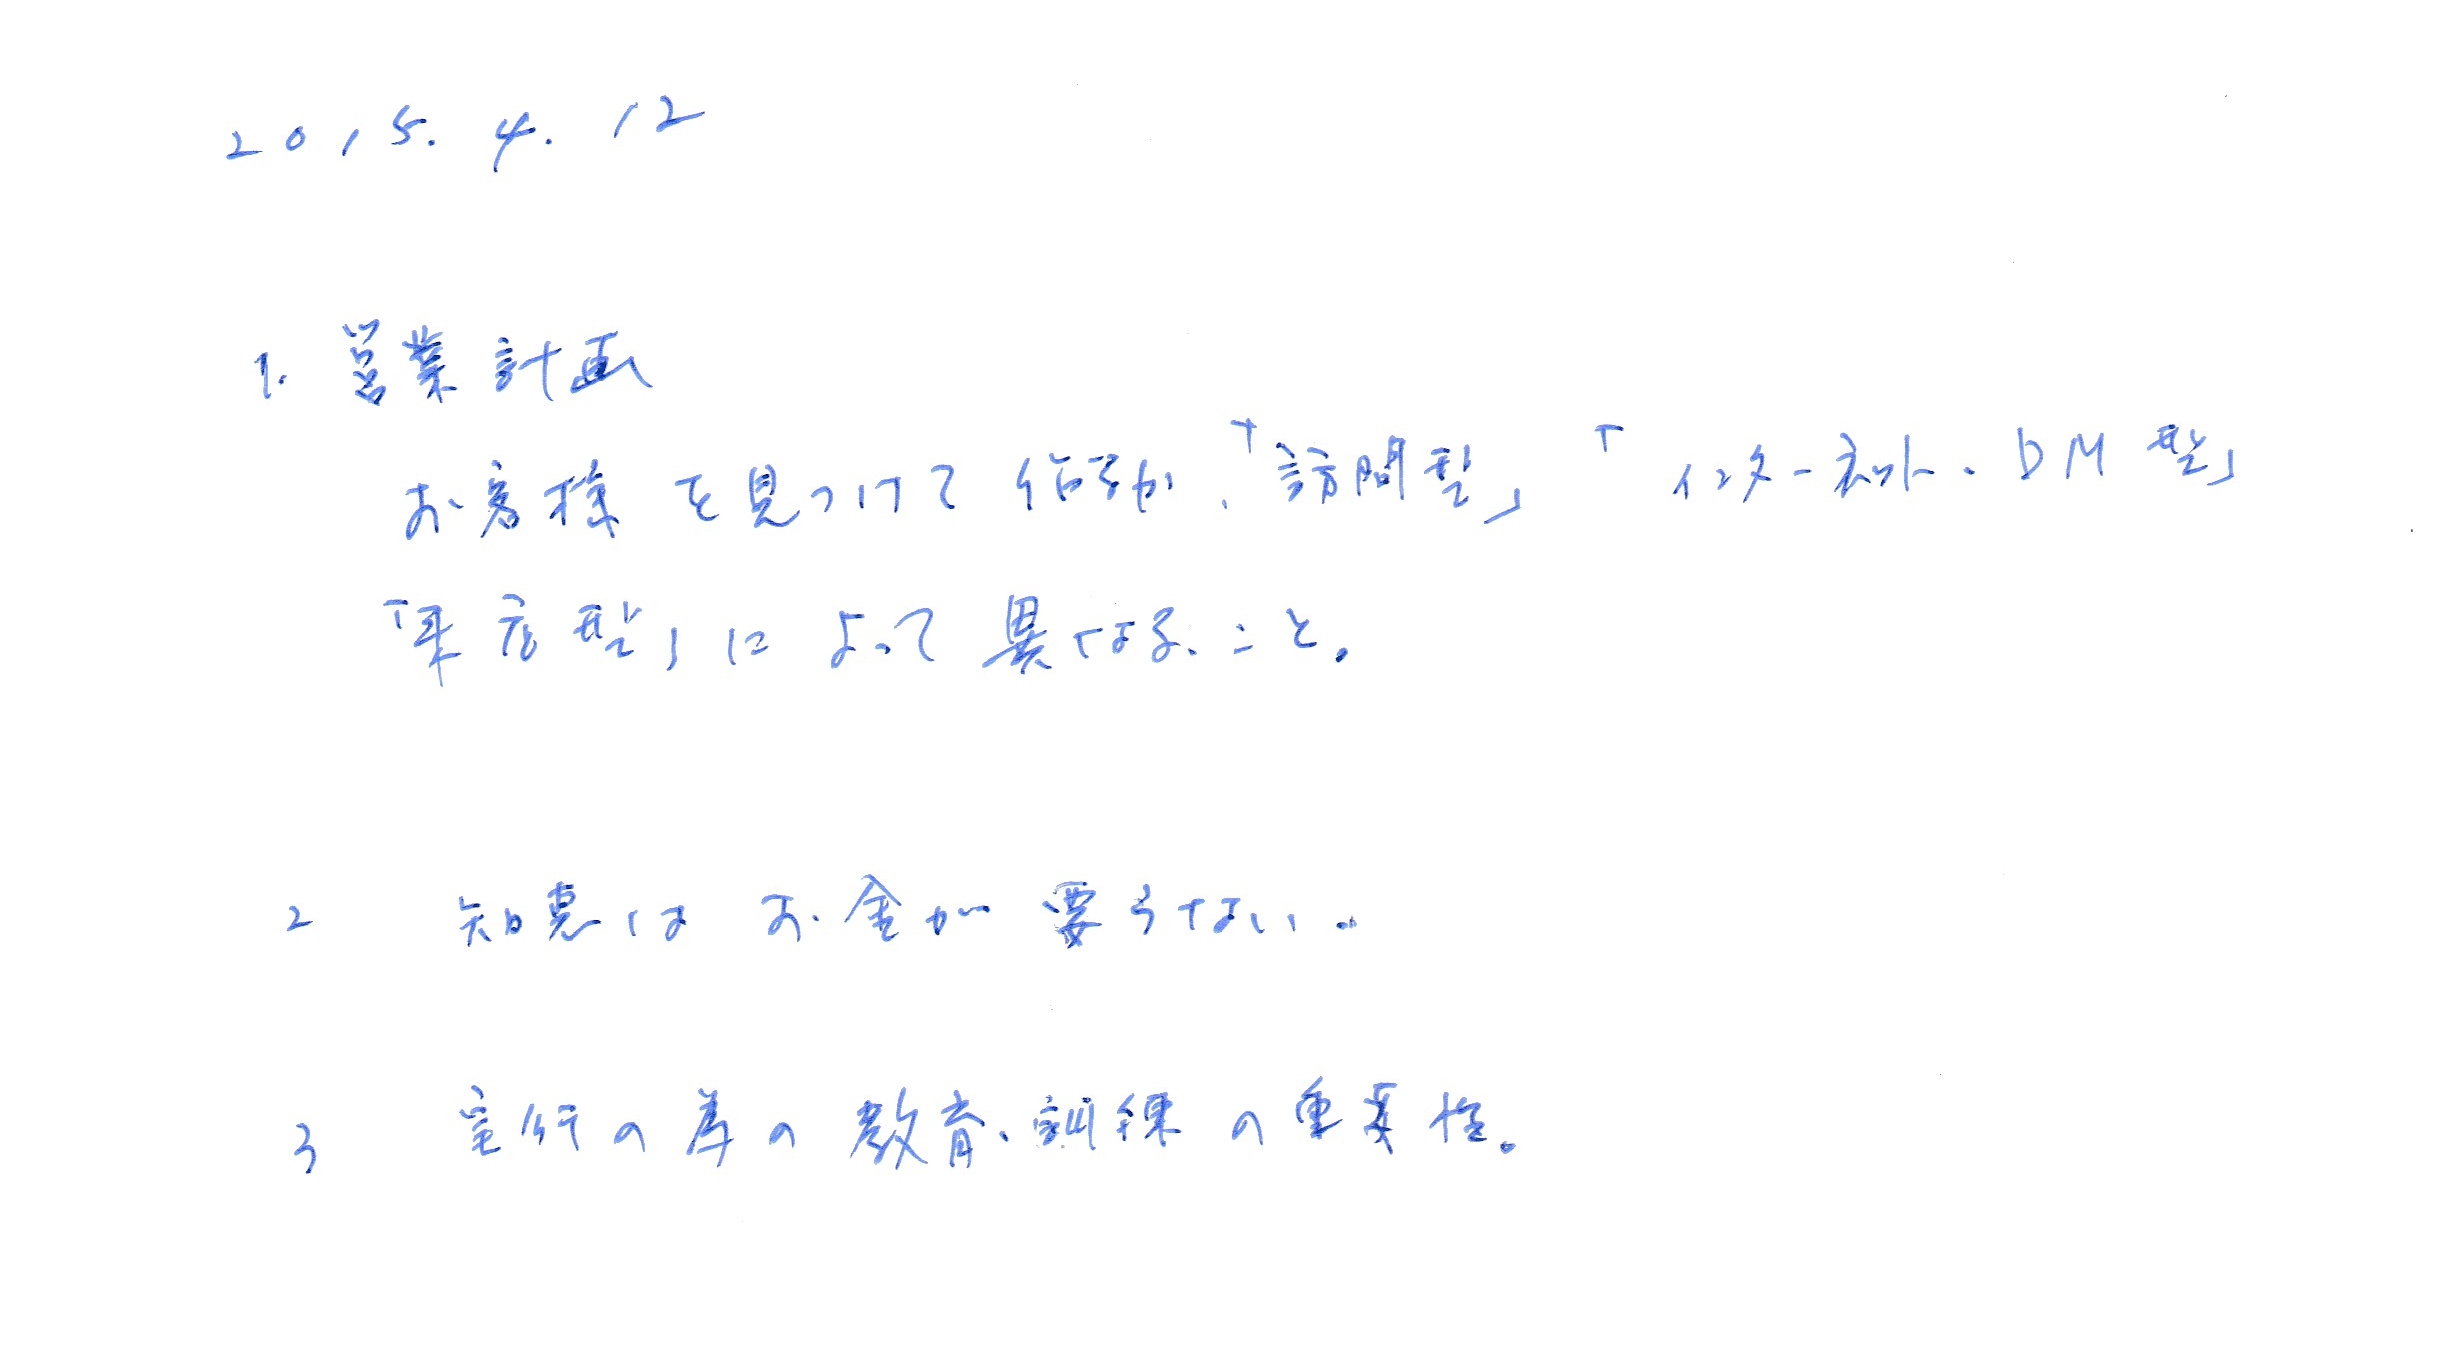 2015. 4. 12
1. 営業計画
お客様を見つけて 作るか、「訪問型」「インターネット・DM型」
「来店型」によって異なること。
2 知恵はお金が要らない。
3 実行の為の教育、訓練の重要性。